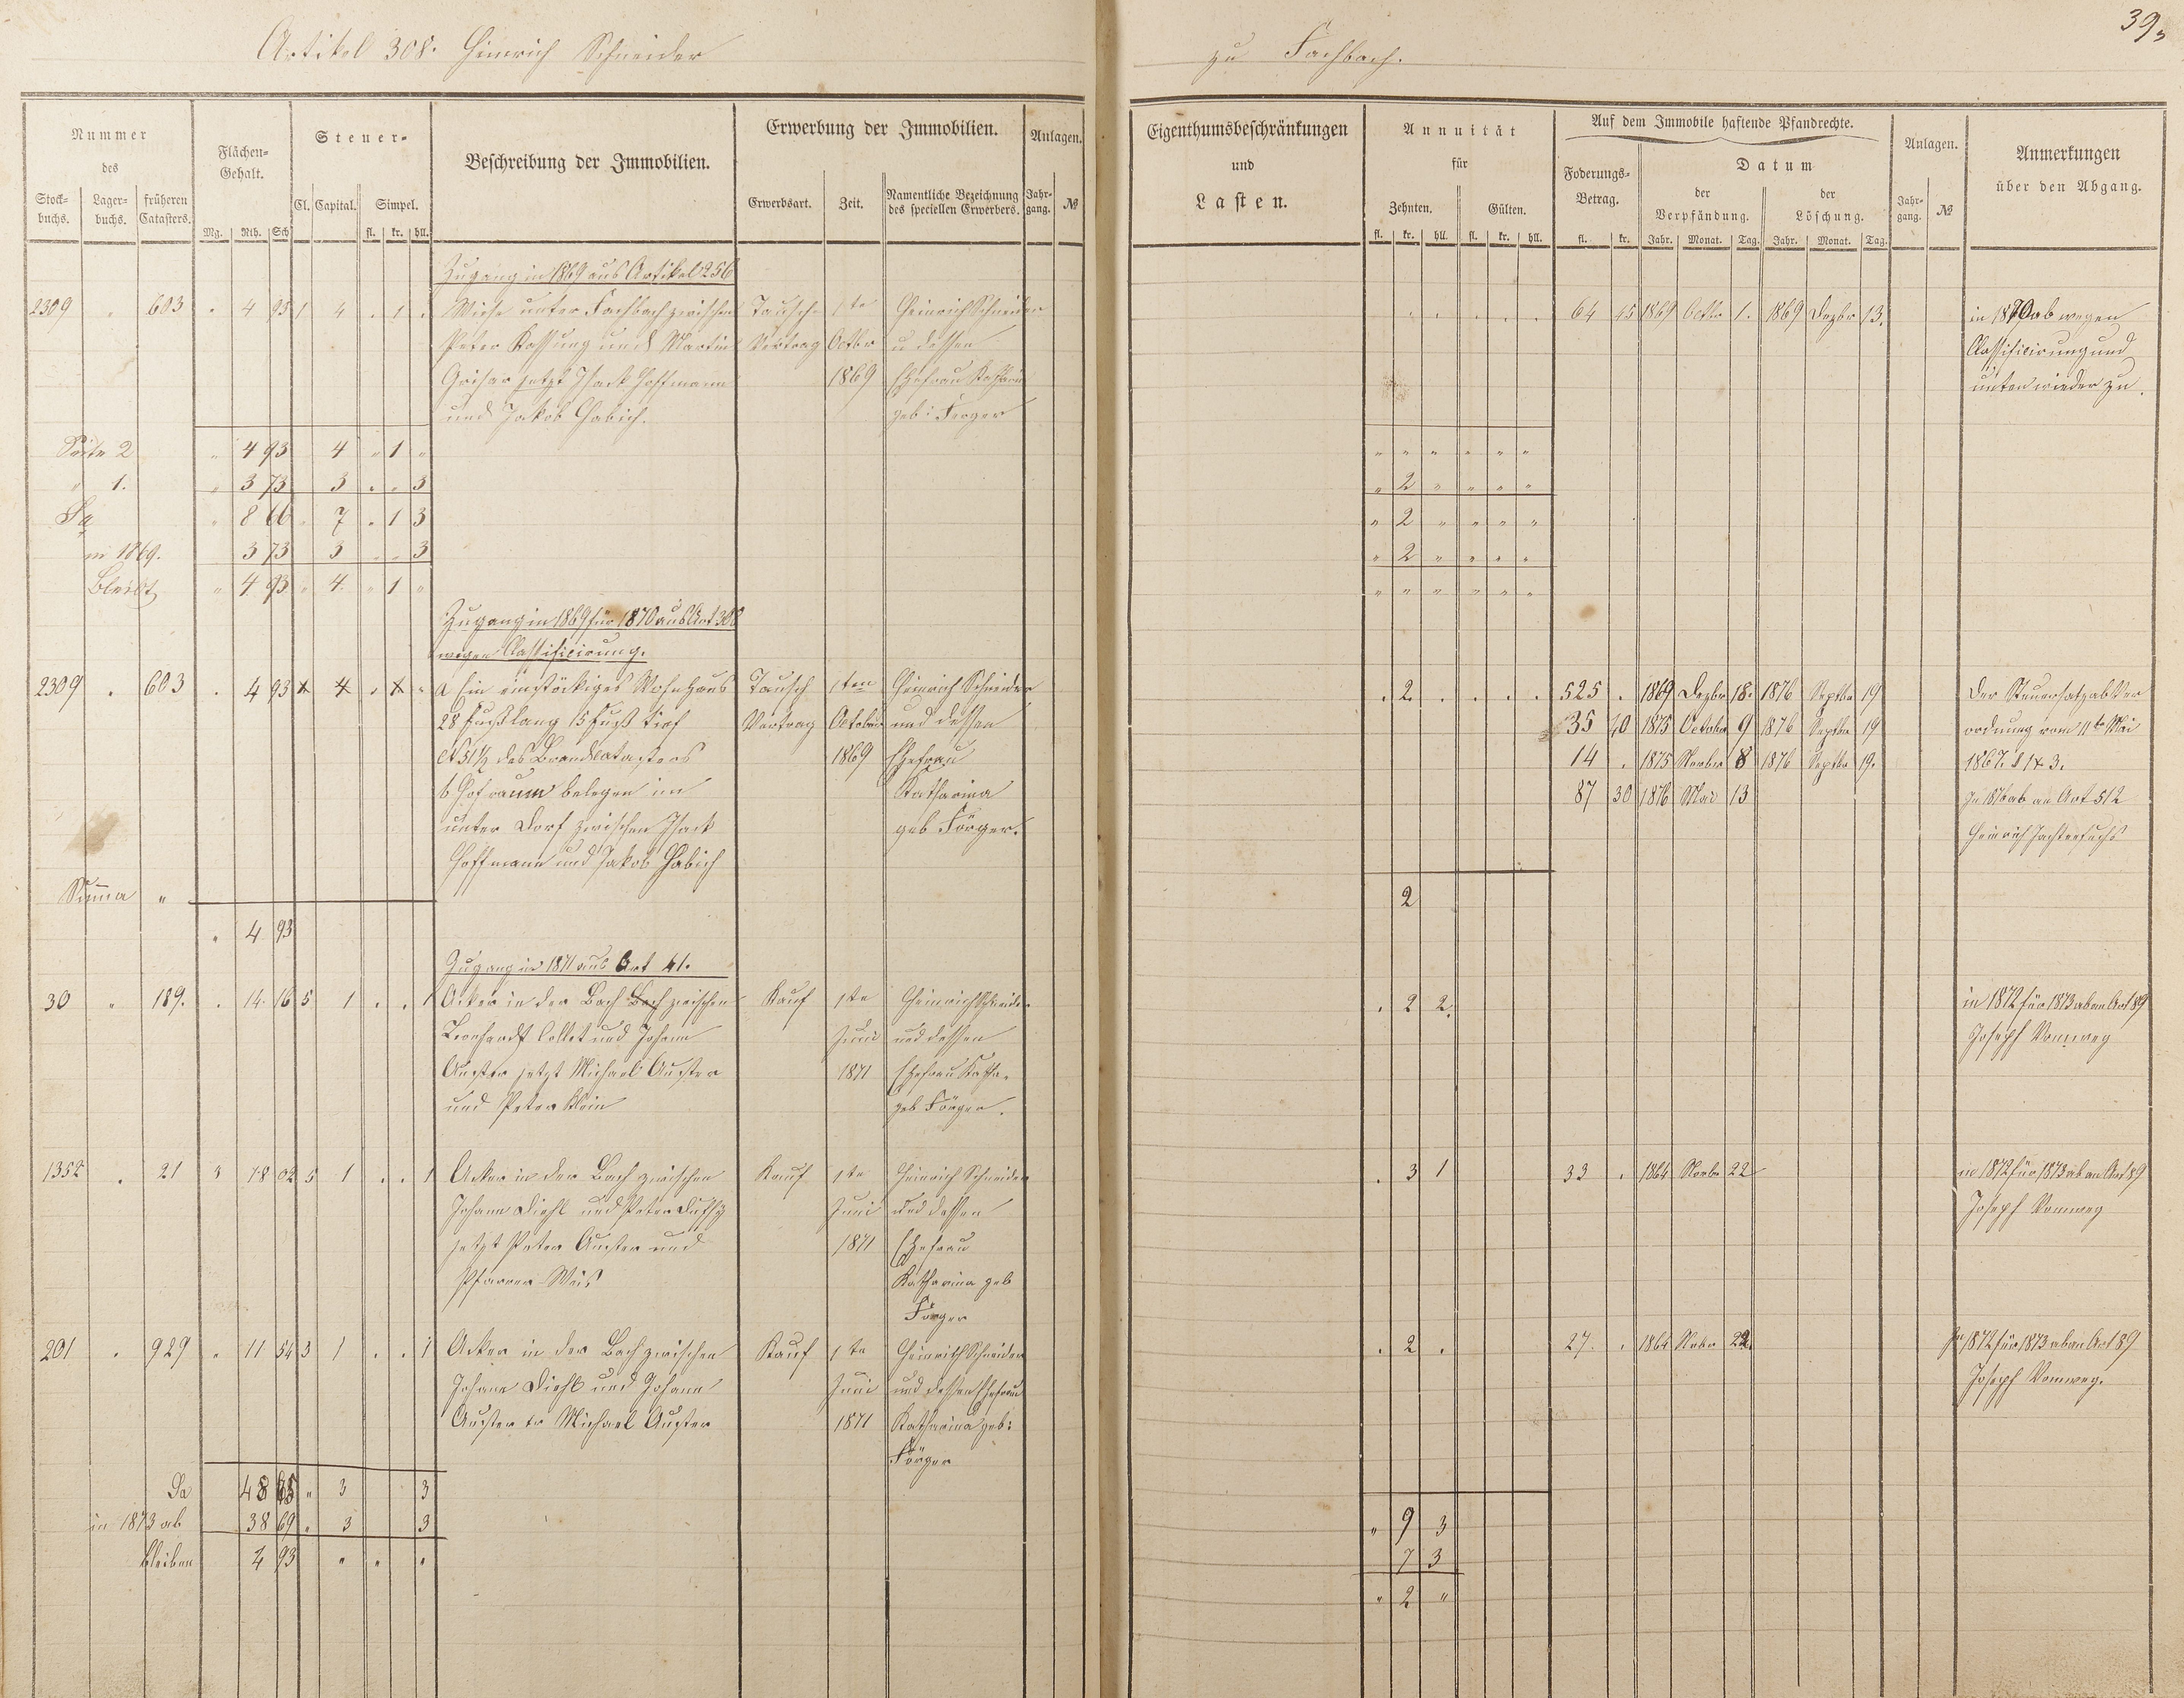 Artikel 308. Heinrich Schneider zu Fachbach.
39
Nummer des
Stockbuchs. Lagerbuchs. früheren Catasters.
Flächen-Gehalt.
Mg. Rth. Sch.
Steuer-
Cl. Capital. Simpel.
fl. kr. hll.
Beschreibung der Immobilien.
Erwerbung der Immobilien.
Erwerbsart. Zeit. Namentliche Bezeichnung des speciellen Erwerbers.
Anlagen.
Jahrgang. №
Eigenthumsbeschränkungen
und
Lasten.
Annuität
für
Zehnten. Gülten.
fl. kr. hll. fl. kr. hll.
Auf dem Immobile haftende Pfandrechte.
Foderungs-Betrag.
fl. kr.
Datum
der Verpfändung. der Löschung.
Jahr. Monat. Tag. Jahr. Monat. Tag.
Anlagen.
Jahrgang. №
Anmerkungen
über den Abgang.
Zugang in 1869 aus Artikel 256
2309 . 603 . 4 93 1 4 . 1 . Wiese unter Fachbach zwischen Tausch- 1te Heinrich Schneider 64 45 1869 Octbr 1. 1869 Dezbr 13. in 1870 ab wegen
Peter und Martin Vertrag Octbr u dessen Classificirung und
Grisar jetzt Isack Hoffmann 1869 Ehefrau unten wieder zu.
und Jakob Habich. geb: Ferger
Seite 2 " 4 93 4 " 1 " " " " " " "
" 1. " 3 73 3 . " 3 " 2 " " " "
Sa " 8 66 " 7 . 1 3 " 2 " " " "
in 1869. 3 73 3 . . 3 " 2 " " " "
Bleibt " 4 93 " 4. " 1 " " " " " " "
Zugang in 1869 für 1870 aus Art 308
wegen Classificirung.
2309 . 603 . 4 93 a Ein einstöckiges Wohnhaus Tausch 1ten Heinrich Schneider . 2 . . . . 525 . 1869 Dezbr 18. 1876 Septbr 19 Der Steuersatz ab Ver
28 Fuß lang 15 Fuß tief Vertrag October und dessen 35 40 1875 October 9 1876 Septbr 19 ordnung vom 11te Mai
№ 51½ des Brandcatasters 1869 Ehefrau 14 . 1875 Novber 8 1876 Septbr 19. 1867.
b Hofraum belegen im Katharina 87 30 1876 Mai 13 In 1876 ab an Art 512
unter Dorf zwischen Isack geb Förger. Heinrich
Hoffmann und Jakob Habich
Summa " 2
" 4 93
Zugang in 1871 aus Art 41.
30 " 189. . 14. 16 5 1 . . 1 Acker in der Bach zwischen Kauf 1te Heinrich Schneider . 2 2. in 1872 für 1873 ab an Art 89
Leonhardt Collet und Johann Juni und dessen Joseph Vomweg
Auster jetzt Michael Auster 1871 Ehefrau Katha.
und Peter Klein geb Förger.
1352 . 21 " 18 02 5 1 . . 1 Acker in der Bach zwischen Kauf 1te Heinrich Schneider . 3 1 33 . 1864 Novbr 22 in 1872 für 1873 ab an Art 89
Johann Diehl und Peter Juni und dessen Joseph Vomweg
jetzt Peter Auster und 1871 Ehefrau
Pfarrer Katharina geb
Förger
201 . 929 . 11 54 3 1 . . 1 Acker in der Bach zwischen Kauf 1te Heinrich Schneider . 2 . 27. . 1864 Novbr 22. In 1872 für 1873 ab an Art 89
Johann Diehl und Johann Juni und dessen Ehefrau Joseph Vomweg.
Auster Michael Auster 1871 Katharina geb:
Förger
Sa 48 65 " 3 3
in 1873 ab 38 69 " 3 3 " 9 3
bleiben 4 93 " " " 7 3
" 2 "